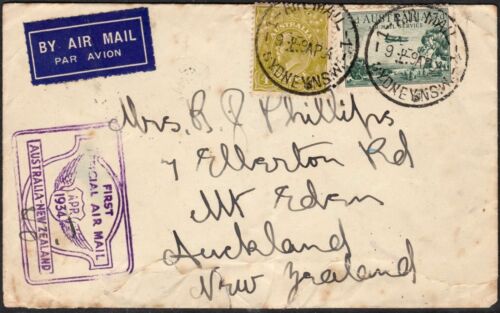 BY AIR MAIL
PAR AVION
AUSTRALIA
AUSTRALIA
AIR MAIL SERVICE
AIR MAIL
SYDNEY N.S.W.
AIR MAIL
SYDNEY N.S.W.
Mrs. B. J. Phillips
7 Ellerton Rd
Mt Eden
Auckland
New Zealand
FIRST
OFFICIAL AIR MAIL
APR
1934
AUSTRALIA-NEW ZEALAND